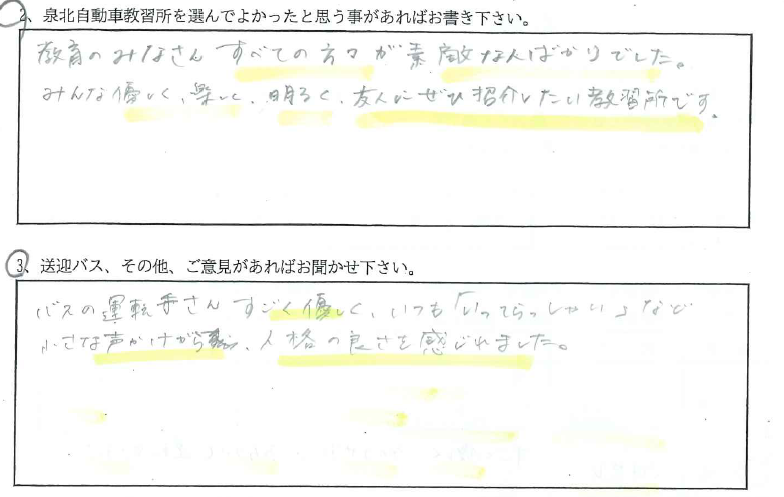 2、泉北自動車教習所を選んでよかったと思う事があればお書き下さい。
教育のみなさん すべての方々が素敵な人ばかりでした。
みんな優しく、楽しく、明るく、友人にぜひ紹介したい教習所です。
3、送迎バス、その他、ご意見があればお聞かせ下さい。
バスの運転手さん すごく優しく、いつも「いってらっしゃい」など
小さな声かけから、人格の良さを感じれました。